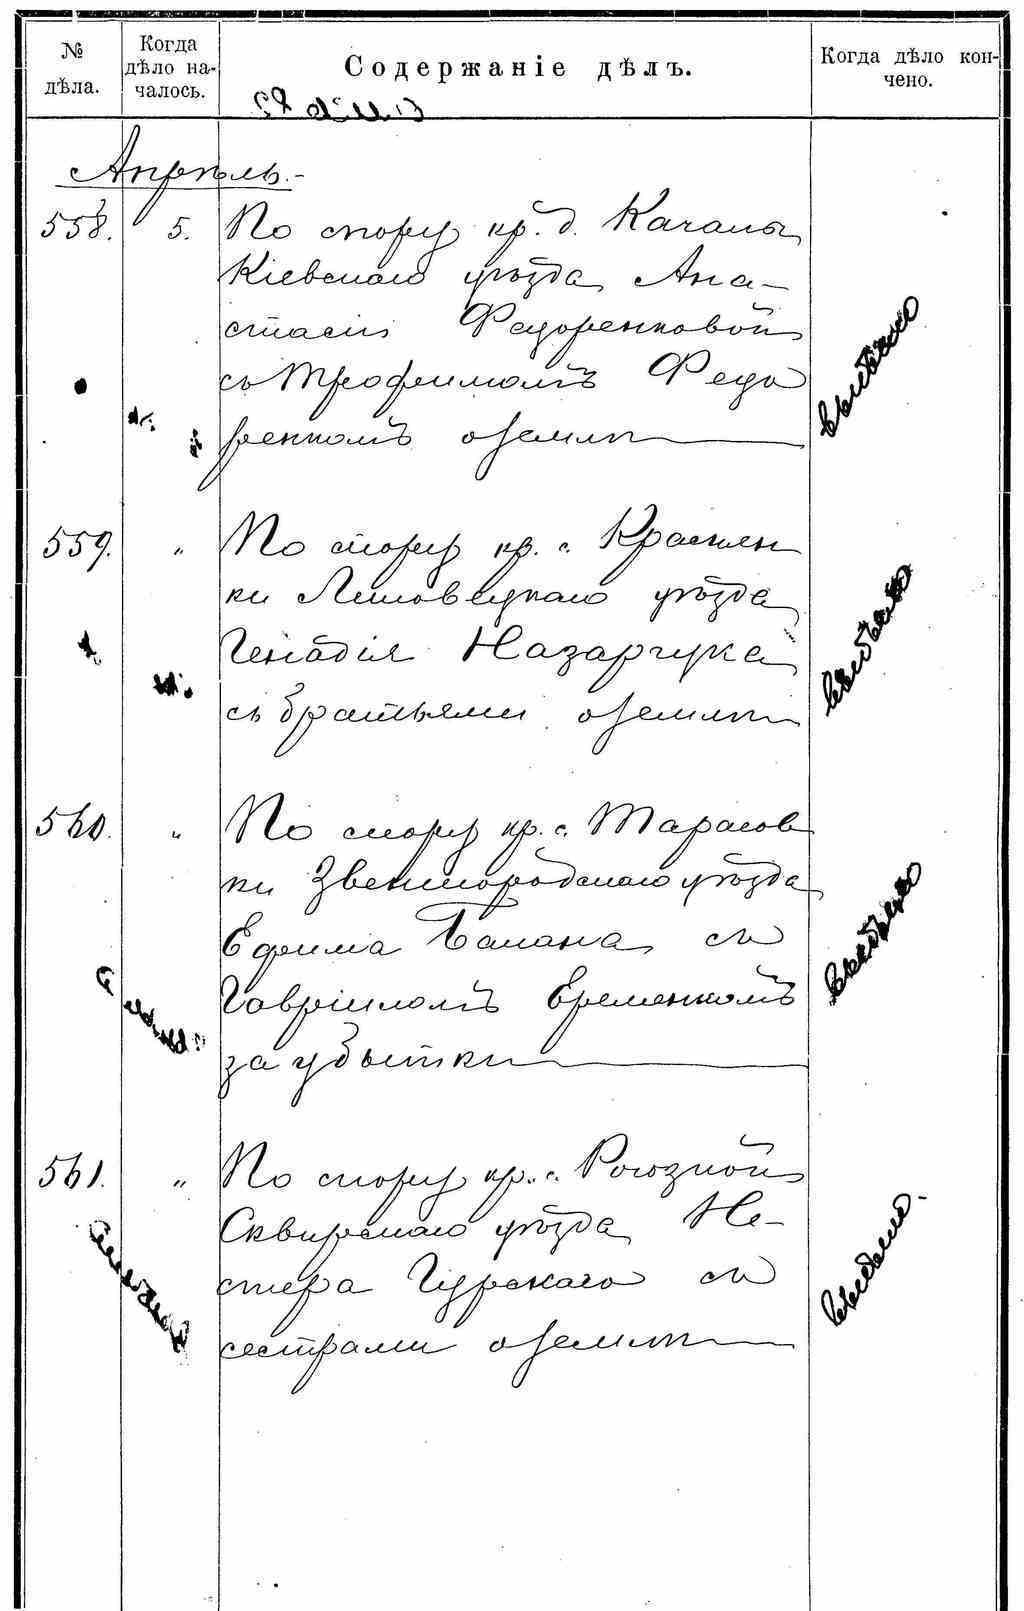 № дѣла.
Когда дѣло началось.
Содержаніе дѣлъ.
Когда дѣло кончено.
Апрѣль.-
558. 5. По спору кр. д. Качалы
Кіевскаго уѣзда Ана-
стасіи Федоренковой
съ Трофимомъ Федо
ренкомъ о землѣ
выбыло
559. " По спору кр. с. Красен
ки Липовецкаго уѣзда
Генадія Назарчука
съ братьями о землѣ
выбыло
560. " По спору кр. с. Тарасов
ки Звенигородскаго уѣзда
Ефима Балана съ
Гавріиломъ Еременкомъ
за убытки
выбыло
561. " По спору кр. с. Рогозной
Сквирскаго уѣзда Не-
стера Гурскаго съ
сестрами о землѣ
выбыло-